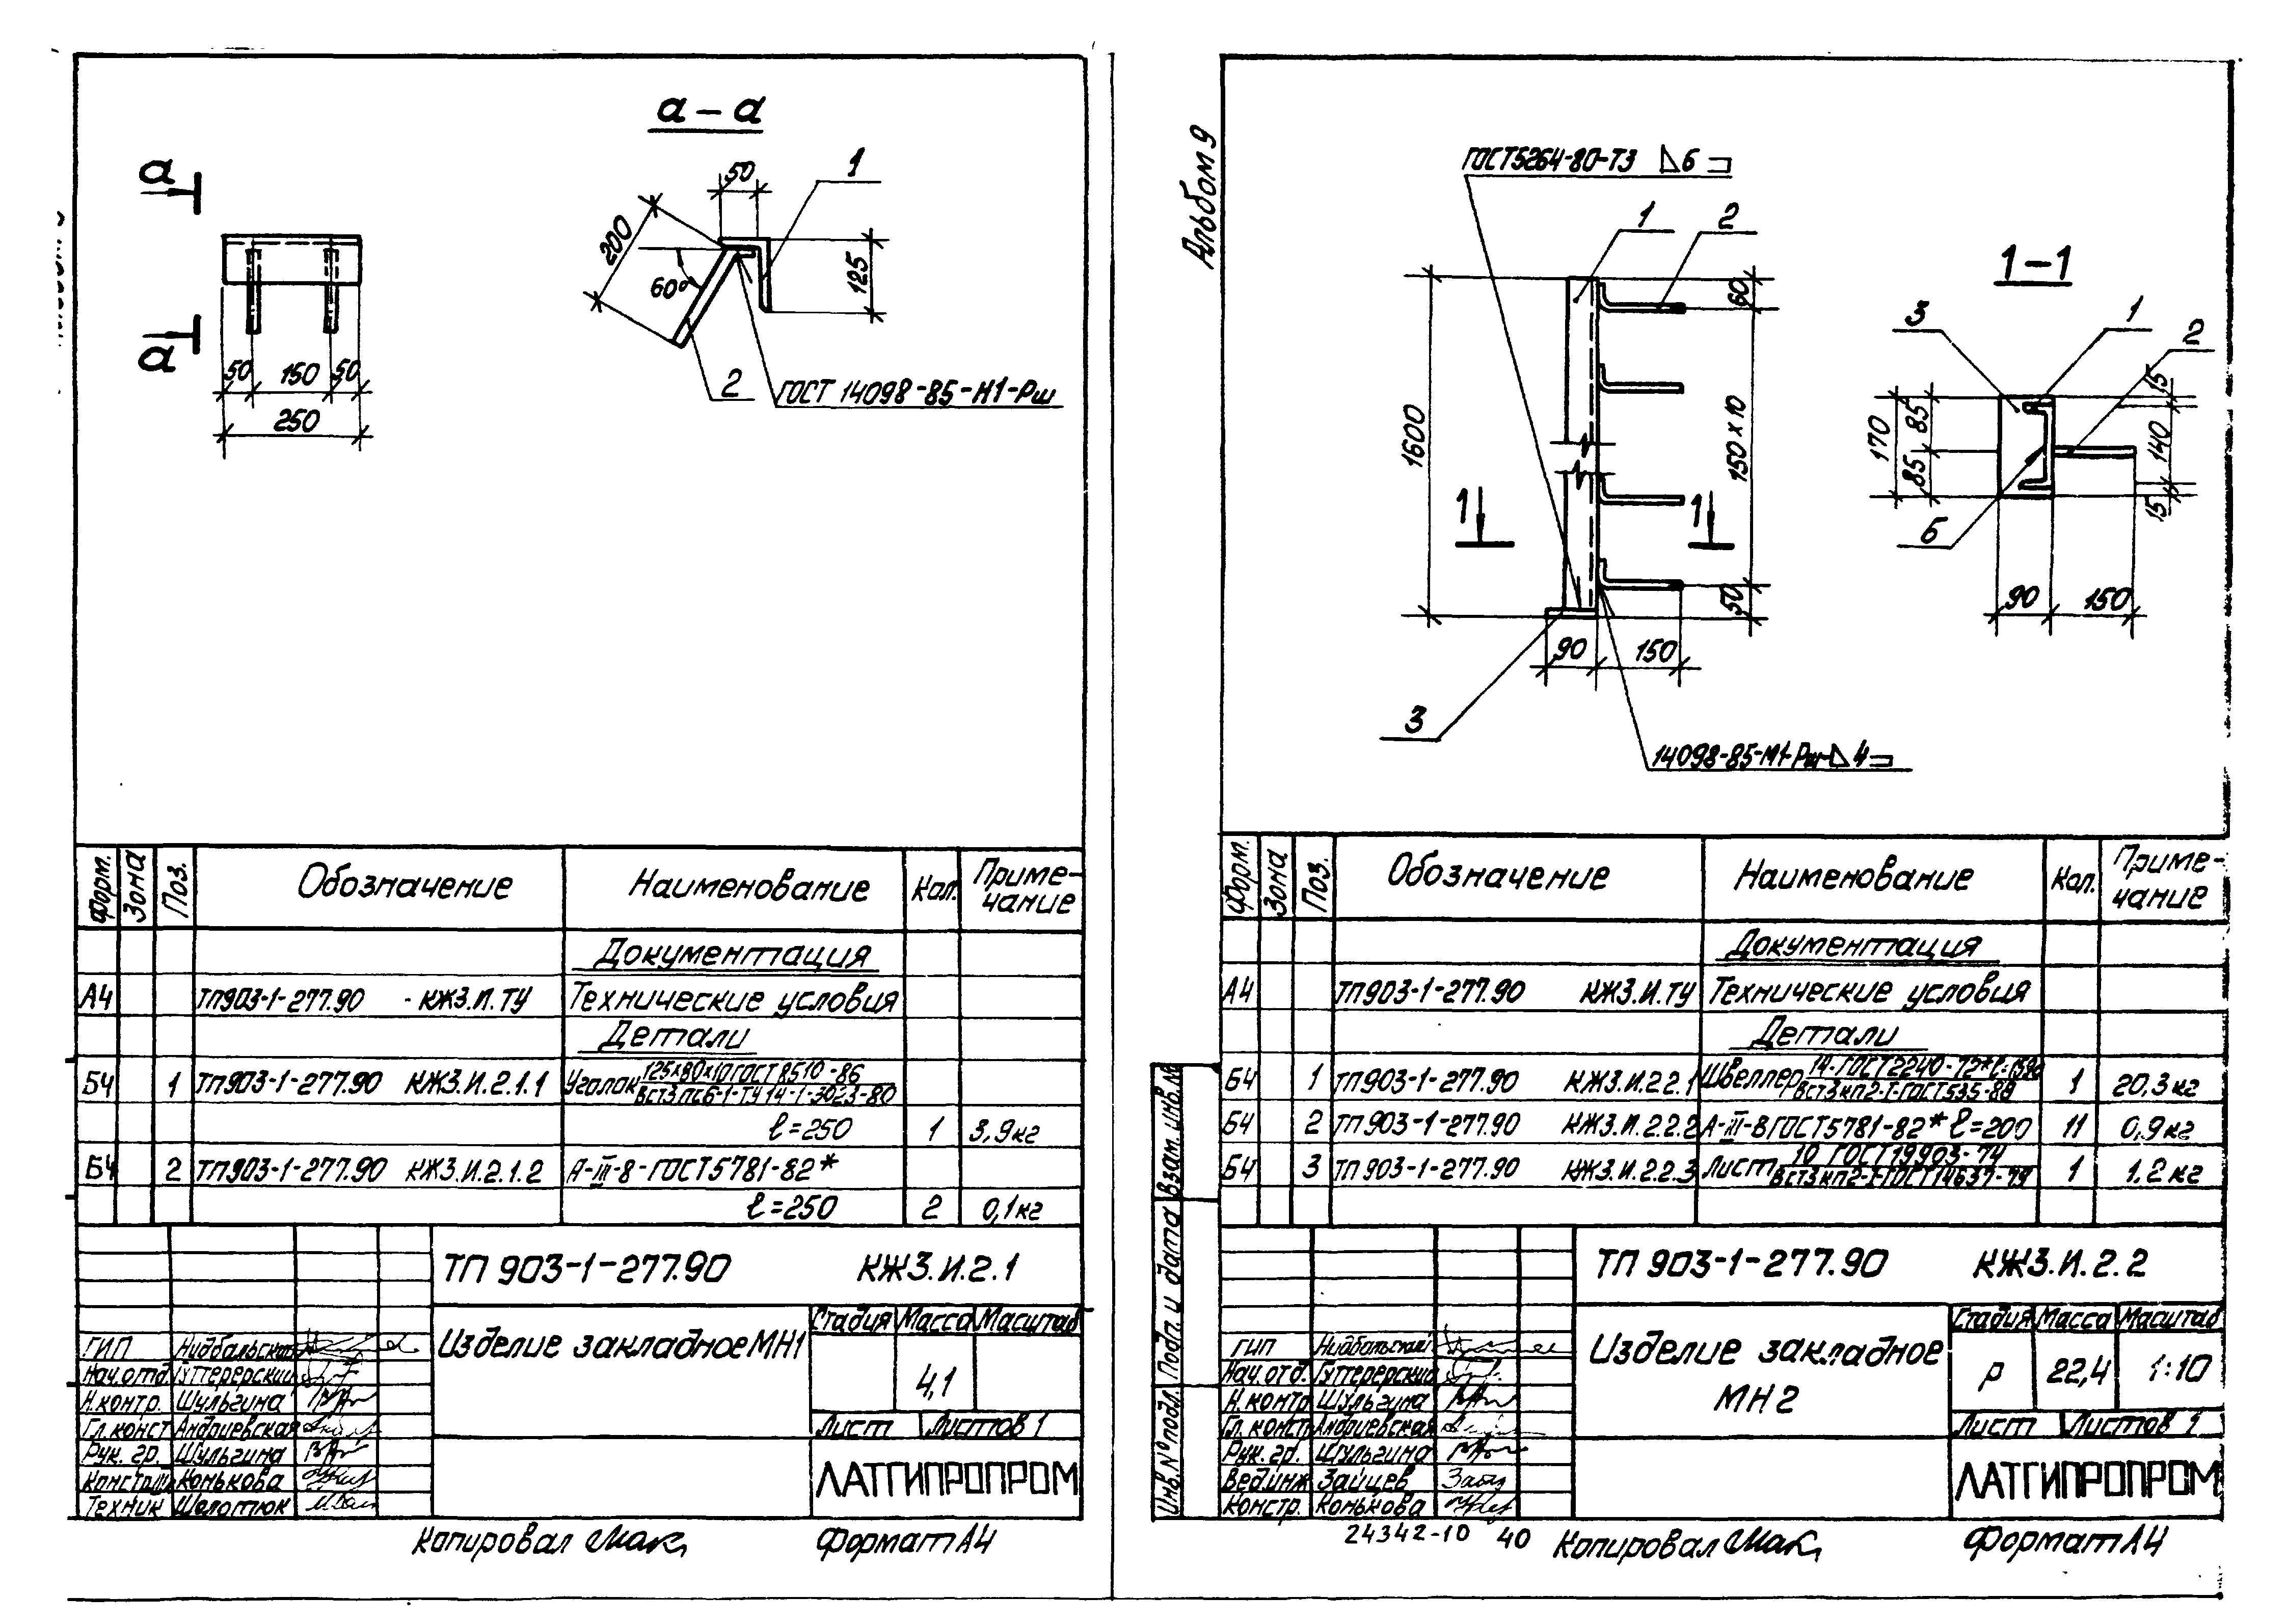 а – а
а
а
50
150
50
250
50
1
200
60°
125
2
ГОСТ 14098-85-Н1-Рш
Форм.
Зона
Поз.
Обозначение
Наименование
Кол.
Приме-
чание
Документация
А4 ТП903-1-277.90 - КЖ3.И.ТУ Технические условия
Детали
Б4 1 ТП903-1-277.90 КЖ3.И.2.1.1 Уголок 125х80х10 ГОСТ 8510-86
Вст3пс6-1-ТУ 14-1-3023-80
ℓ=250 1 3,9кг
Б4 2 ТП903-1-277.90 КЖ3.И.2.1.2 А-III-8-ГОСТ5781-82*
ℓ=250 2 0,1кг
ТП 903-1-277.90 КЖ3.И.2.1
Изделие закладное МН1
Стадия Масса Масштаб
4,1
Лист Листов 1
ЛАТГИПРОПРОМ
ГИП Нидбальская
Нач.отд. Гуттерерский
Н.контр. Шульгина
Гл.конст Андриевская
Рук. гр. Шульгина
Конькова
Техник Шолотюк
Копировал
Формат А4
Альбом 9
ГОСТ5264-80-Т3 6
1
2
60
1600
150 х 10
1
1
50
90
150
3
14098-85-Н1-Рш- 4
1-1
3
1
2
15
85
170
140
85
15
Б
90
150
Форм.
Зона
Поз.
Обозначение
Наименование
Кол.
Приме-
чание
Документация
А4 ТП903-1-277.90 КЖ3.И.ТУ Технические условия
Детали
Б4 1 ТП903-1-277.90 КЖ3.И.2.2.1 Швеллер 14-ГОСТ2240-72* ℓ=1590 1 20,3кг
Вст3кп2-I-ГОСТ535-88
Б4 2 ТП903-1-277.90 КЖ3.И.2.2.2 А-III-8ГОСТ5781-82* ℓ=200 11 0,9кг
Б4 3 ТП903-1-277.90 КЖ3.И.2.2.3 Лист 10 ГОСТ19903-74 1 1,2кг
Вст3кп2-I-ГОСТ14637-79
Взам. инв.№
Подп. и дата
Инв.№ подл.
ТП 903-1-277.90 КЖ3.И.2.2
Изделие закладное
МН2
Стадия Масса Масштаб
Р 22,4 1:10
Лист Листов 1
ЛАТГИПРОПРОМ
ГИП Нидбальский
Нач.отд. Гуттерерский
Н.контр Шульгина
Гл. констр Андриевская
Рук. гр. Шульгина
Вед.инж Зайцев
Констр. Конькова
24342-10 40
Копировал
Формат А4